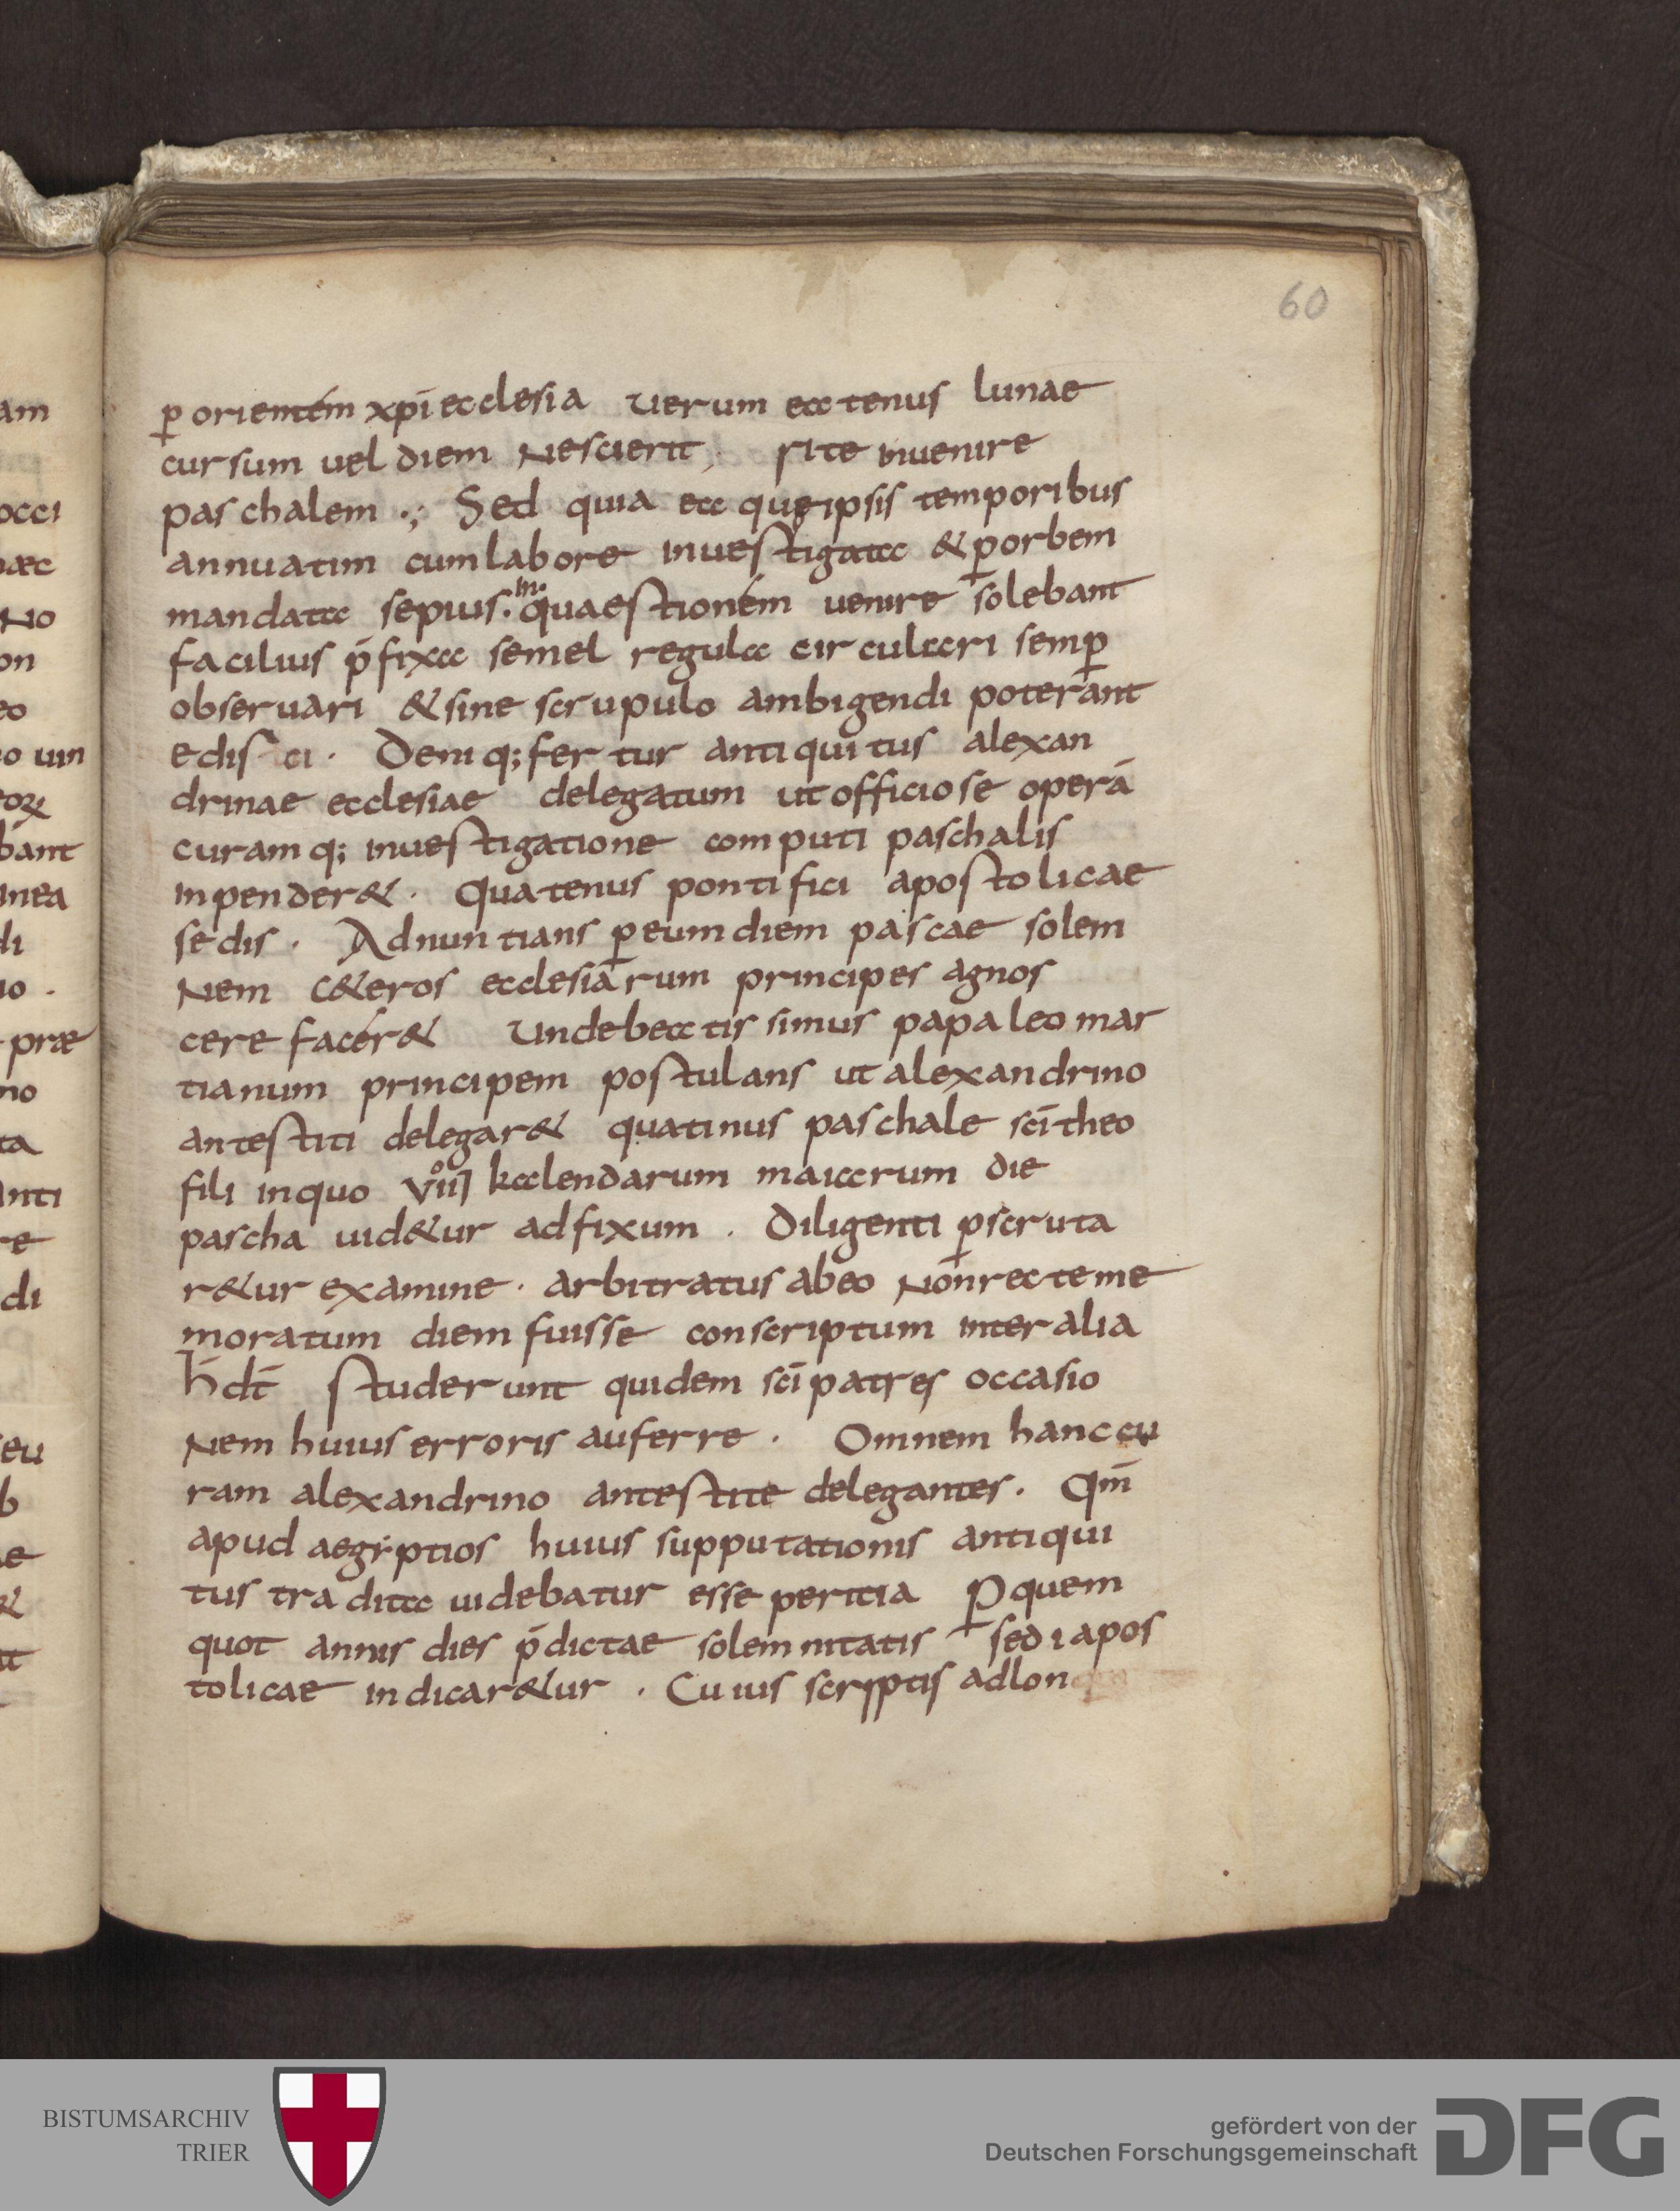 60
am
occi
aec
No
on
eo
o uin
eoꝝ
bant
inea
di
io .
prae
no
ta
anti
re
di
eu
b
e
&
it
ꝑ orientem xp̄i ecclesia uerum eatenus lunae
cursum uel diem Nescierit, rite inuenire
paschalem .,; Sed quia ea quę ipsis temporibus
annuatim cum labore inuestigata & ꝑ orbem
mandata sepius. in. quaestionem uenire solebant
facilius p̄fixa semel regula circulari semꝑ
obseruari & sine scrupulo ambigendi poterant
edisci . Deniq; fertur antiquitus alexan
drinae ecclesiae delegatum ut officiose operā
curamq; inuestigatione computi paschalis
inpender& . Quatenus pontifici apostolicae
sedis . Adnuntians ꝑ eum diem pascae solem
Nem c&eros ecclesiarum principes agnos
cere facer& Unde beatissimus papa leo mar
tianum principem postulans ut alexandrino
antestiti delegar& quatinus paschale sc̄i theo
fili in quo VIIIº kalendarum maiarum die
pascha uid&ur adfixum . Diligenti ꝑscruta
r&ur examine . arbitratus ab eo Non recte me
moratum diem fuisse conscriptum inter alia
h̄ dt̄ studerunt quidem sc̄i patres occasio
Nem huius erroris auferre . Omnem hanc cu
ram alexandrino antestite delegantes . Qm̄
apud aegẏptios huius supputationis antiqui
tus tradita uidebatur esse peritia Ꝑ quem
quot annis dies p̄dictae solemnitatis sedi apos
tolicae indicar&ur . Cuius scriptis ad lon
BISTUMSARCHIV
TRIER
gefördert von der
Deutschen Forschungsgemeinschaft
DFG